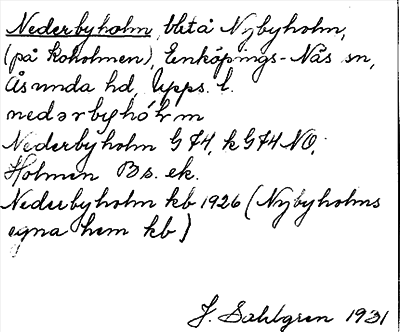 Nederbyholm, bletå Nybyholm,
(på Koholmen), Enköpings-Näs sn,
Åsunda hd, Upps. l.
nedərbyhól·m
Nederbyholm G 74, k G 74 NO,
Holmen Bs. ek.
Nederbyholm kb 1926 (Nybyholms
egna hem kb)
J. Sahlgren 1931